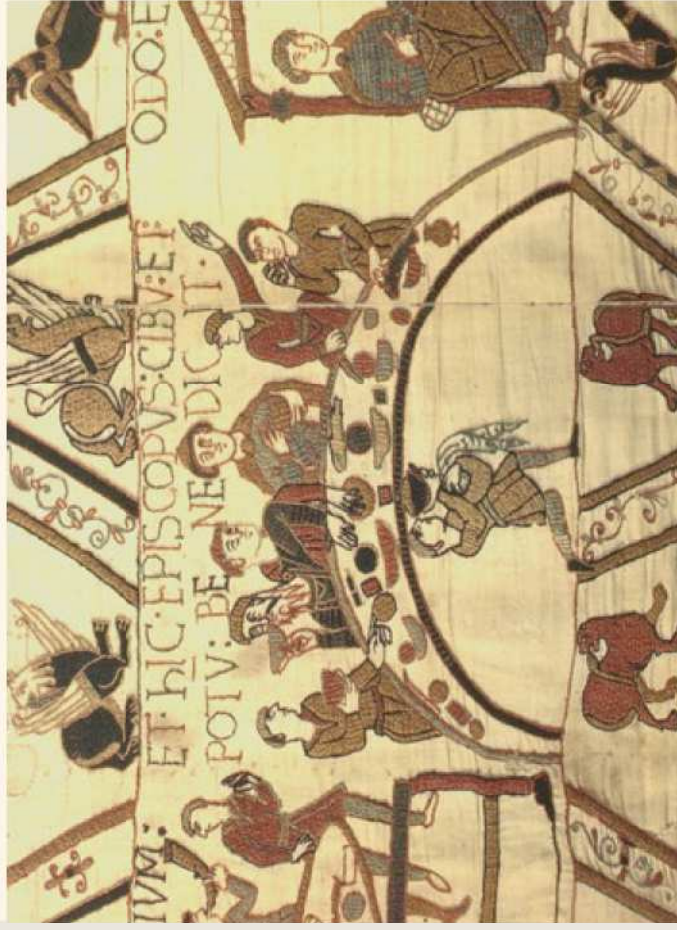 IVM:
ET·hIC·EPISCOPVS:CIBV:ET:
POTV: BE NE DIC IT·
ODO:E